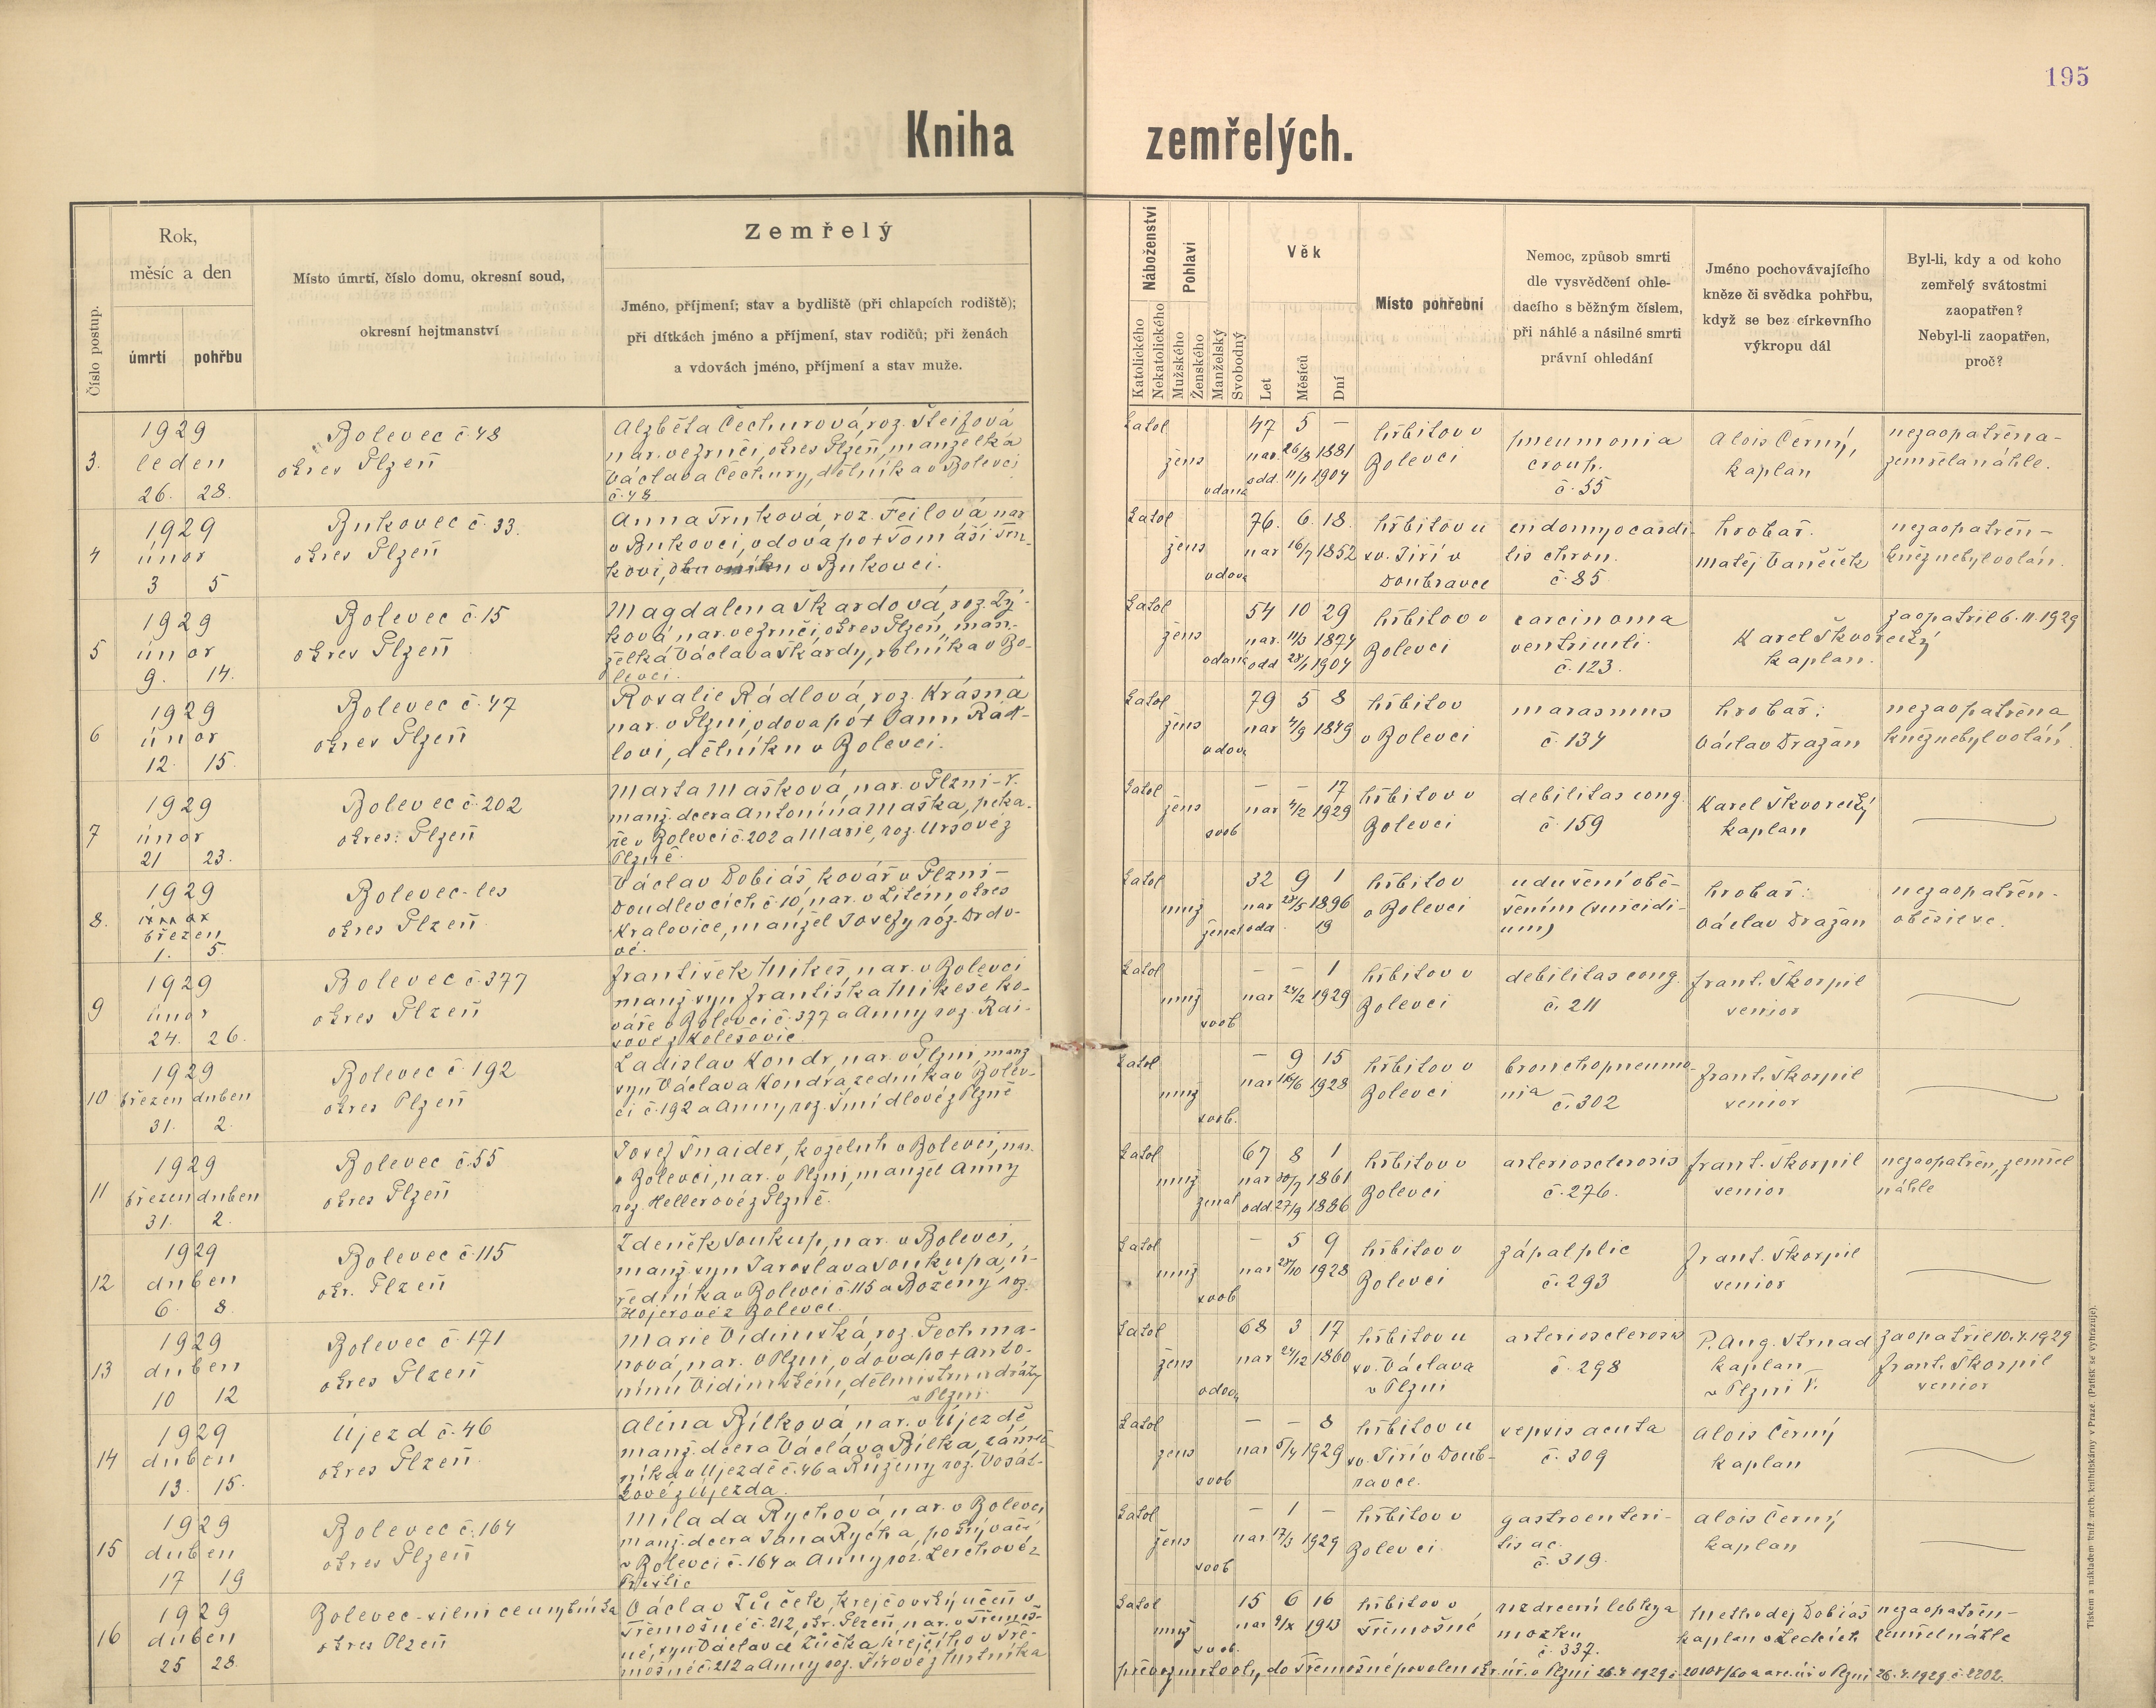 195
Kniha zemřelých.
Číslo postup.
Rok,
měsíc a den
úmrtí
pohřbu
Místo úmrtí, číslo domu, okresní soud,
okresní hejtmanství
Zemřelý
Jméno, příjmení; stav a bydliště (při chlapcích rodiště);
při dítkách jméno a příjmení, stav rodičů; při ženách
a vdovách jméno, příjmení a stav muže.
Náboženství
Katolického
Nekatolického
Pohlaví
Mužského
Ženského
Manželský
Svobodný
Věk
Let
Měsíců
Dní
Místo pohřební
Nemoc, způsob smrti
dle vysvědčení ohle-
dacího s běžným číslem,
při náhlé a násilné smrti
právní ohledání
Jméno pochovávajícího
kněze či svědka pohřbu,
když se bez církevního
výkropu dál
Byl-li, kdy a od koho
zemřelý svátostmi
zaopatřen?
Nebyl-li zaopatřen,
proč?
3.
1929
leden
26. 28.
Bolevec č. 48
okres Plzeň
Alžběta Čechurová, roz. Šleifová
nar. ve Zruči, okres Plzeň, manželka
Václava Čechury, dělníka v Bolevci
č. 48
katol
žens
vdaná
47 5 –
nar. 26/8 1881
odd. 11/1 1904
hřbitov v
Bolevci
pneumonia
croup.
č. 55
Alois Černý,
kaplan
nezaopatřena –
zemřela náhle.
4
1929
únor
3 5
Bukovec č. 33.
okres Plzeň
Anna Trnková, roz. Feilová nar
v Bukovci, vdova po † Tomáši Trn-
kovi, v Bukovci.
katol
žens
vdova
76. 6. 18.
nar 16/7 1852
hřbitov u
sv. Jiří v
Doubravce
endomyocardi-
tis chron.
č. 85
hrobař.
Matěj Vaněček
nezaopatřen –
kněz nebyl volán.
5
1929
únor
9. 14.
Bolevec č. 15
okres Plzeň
Magdalena Škardová, roz. Zý-
ková nar. ve Zruči, okres Plzeň, man-
želka Václava Škardy, rolníka v Bo-
levci.
katol
žens
vdaná
54 10 29
nar. 11/3 1874
odd 28/1 1904
hřbitov v
Bolevci
carcinoma
ventriculi.
č. 123.
Karel Škvorecký
kaplan.
zaopatřil 6. II. 1929
6
1929
únor
12. 15.
Bolevec č. 47
okres Plzeň
Rosalie Rádlová, roz. Krásná
nar. v Plzni, vdova po † Janu Rád-
lovi, dělníku v Bolevci.
katol
žens
vdova
79 5 8
nar 4/9 1849
hřbitov
v Bolevci
marasmus
č. 134
hrobař:
Václav Dražan
nezaopatřena,
kněz nebyl volán.
7
1929
únor
21 23.
Bolevec č. 202
okres: Plzeň
Marta Mašková, nar. v Plzni – V.
manž. dcera Antonína Maška, peka-
ře v Bolevci č. 202 a Marie, roz. Ursové z
Plzně.
katol
žens
svob
– – 17
nar 4/2 1929
hřbitov v
Bolevci
debilitas cong.
č. 159
Karel Škvorecký
kaplan
8.
1929
březen
1. 5.
Bolevec-les
okres Plzeň
Václav Dobiáš kovář v Plzni –
Doudlevcích č. 10, nar. v Lítém okres
Kralovice, manžel Josefy roz. Drdo-
vé.
katol
muž
ženat
32 9 1
nar 28/5 1896
oda 19
hřbitov
v Bolevci
udušení obě-
šením (suicidi-
um)
hrobař:
Václav Dražan
nezaopatřen –
oběsil se.
9
1929
únor
24. 26.
Bolevec č. 377
okres Plzeň
František Mikeš, nar. v Bolevci
manž. syn Františka Mikeše ko-
váře v Bolevci č. 377 a Anny roz. Rai-
sové z Kolešovic
katol
muž
svob
– – 1
nar 24/2 1929
hřbitov v
Bolevci
debilitas cong.
č. 211
Frant. Škorpil
senior
10
1929
březen duben
31. 2.
Bolevec č. 192
okres Plzeň
Ladislav Kondr, nar. v Plzni, manž
syn Václava Kondra, zedníka v Bolev-
ci č. 192 a Anny, roz. Šmídlové z Plzně
katol
muž
svob.
– 9 15
nar 16/6 1928
hřbitov v
Bolevci
bronchopneumo-
nia
č. 302
Frant. Škorpil
senior
11
1929
březen duben
31. 2.
Bolevec č. 55
okres Plzeň
Josef Šnaider, koželuh v Bolevci, nar.
v Bolevci, nar. v Plzni, manžel Anny
roz. Hellerové z Plzně.
katol
muž
ženat
67 8 1
nar 30/7 1861
odd. 27/9 1886
hřbitov v
Bolevci
arteriosclerosis
č. 276.
Frant. Škorpil
senior
nezaopatřen, zemřel
náhle
12
1929
duben
6. 8.
Bolevec č. 115
okr. Plzeň
Zdeněk Soukup, nar. v Bolevci,
manž. syn Jaroslava Soukupa, ú-
ředníka v Bolevci č. 115 a Boženy, roz.
Hojerové z Bolevce.
katol
muž
svob
– 5 9
nar 28/10 1928
hřbitov v
Bolevci
zápal plic
č. 293
Frant. Škorpil
senior
13
1929
duben
10 12
Bolevec č. 171
okres Plzeň
Marie Vidimská, roz. Pechma-
nová, nar. v Plzni, vdova po † Anto-
nínu Vidimském, dělmistru u dráhy
v Plzni
katol
žens
vdova
68 3 17
nar 24/12 1860
hřbitov u
sv. Václava
v Plzni
arteriosclerosis
č. 298
P. Aug. Strnad
kaplan
v Plzni V.
zaopatřil 10. 4. 1929
Frant. Škorpil
senior
14
1929
duben
13. 15.
Újezd č. 46
okres Plzeň
Alena Bílková nar. v Újezdě
manž. dcera Václava Bílka, zámeč-
níka v Újezdě č. 46 a Růženy roz. Vosát-
kové z Újezda.
katol
žens
svob
– – 8
nar 5/4 1929
hřbitov u
sv. Jiří v Doub-
ravce.
sepsis acuta
č. 309
Alois Černý
kaplan
15
1929
duben
17 19
Bolevec č. 164
okres Plzeň
Milada Rychová, nar. v Bolevci
manž. dcera Jana Rycha, pošývače
v Bolevci č. 164 a Anny roz. Lerchové z
katol
žens
svob
– 1 –
nar 17/3 1929
hřbitov v
Bolevci
gastroenteri-
tis ac.
č. 319.
Alois Černý
kaplan
16
1929
duben
25 28.
Bolevec-silnice
okres Plzeň
Václav Žůček, krejčovský učeň v
Třemošné č. 212, okr. Plzeň, nar. v Třemoš-
né, syn Václava Žůčka krejčího v Tře-
mošné č. 212 a Anny roz.
katol
muž
svob.
15 6 16
nar 9/X 1913
hřbitov v
Třemošné
rozdrcení lebky a
mozku
č. 337.
Methoděj Dobiáš
kaplan v Ledcích
nezaopatřen –
zemřel náhle
převoz mrtvoly do Třemošné povolen okr. úř. v Plzni 26. 4. 1929 26. 4. 1929 č. 2202.
Tiskem a nákladem kníž. arcib. knihtiskárny v Praze. (Patisk se vyhrazuje).